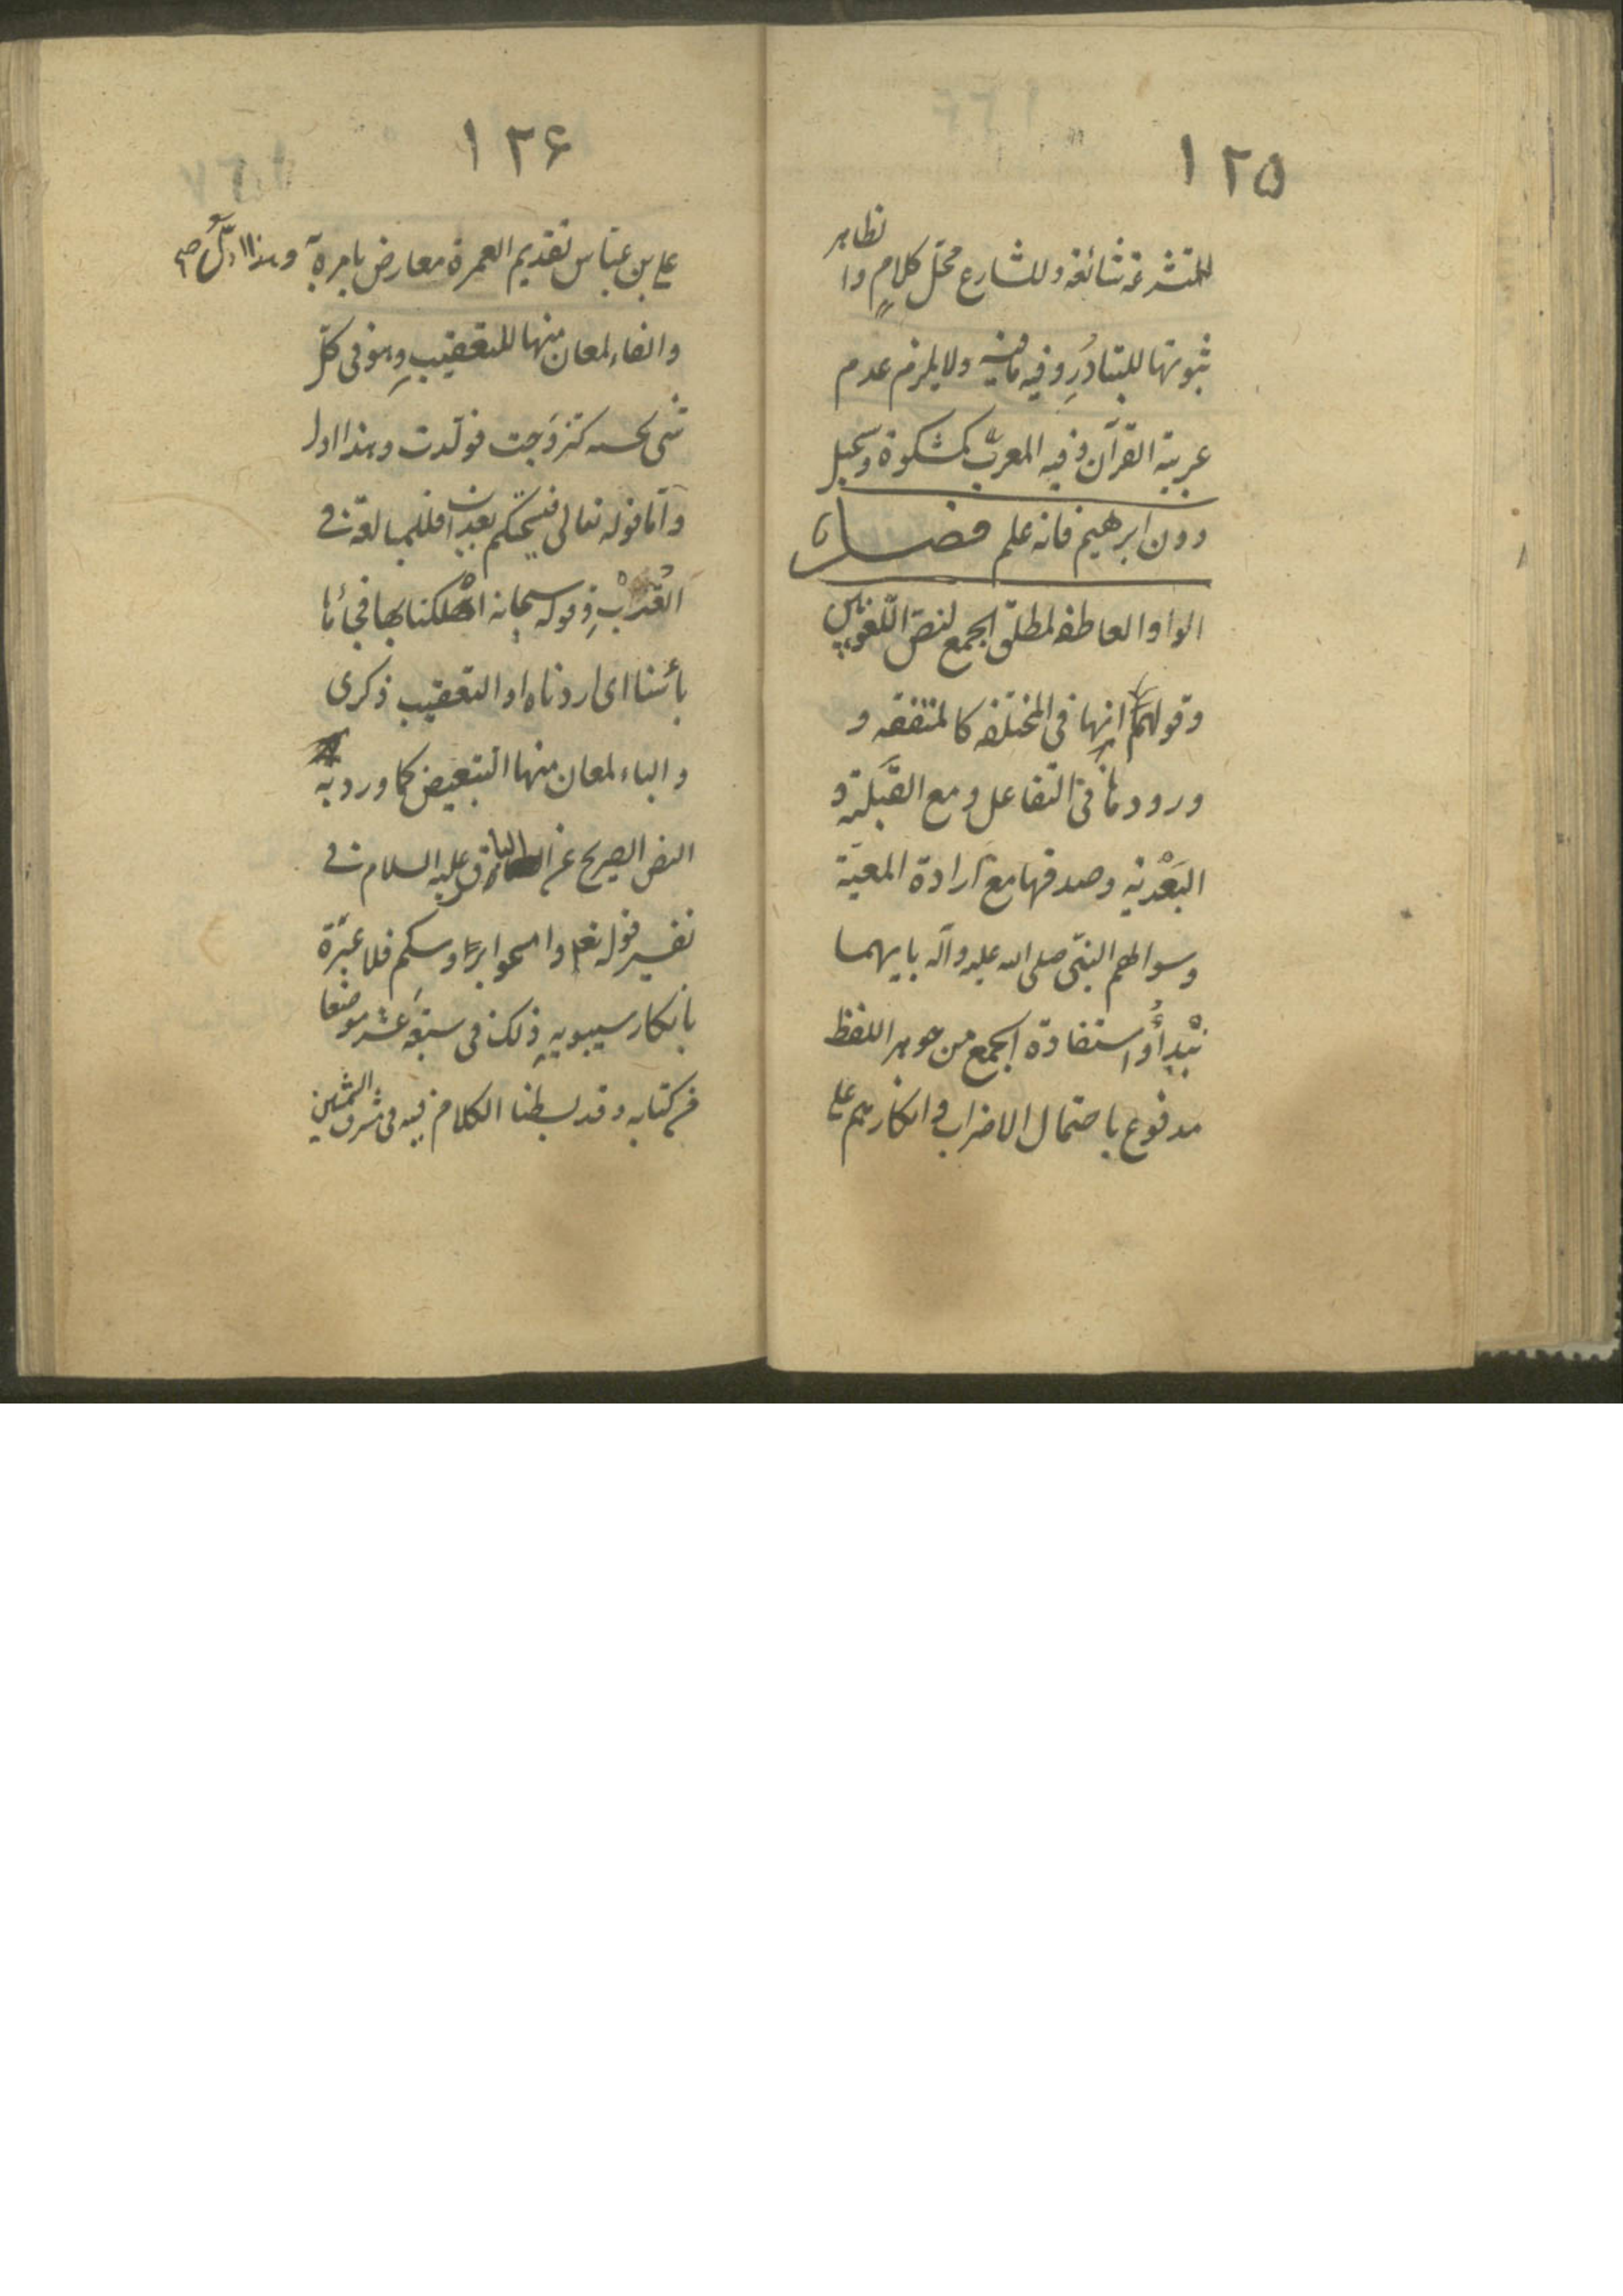 ١٢٥
للمتشرعة شائعة وللشارع محل كلام والظاهر
ثبوتها للتبادُرِ وفيه ما فيه ولا يلزم عدم
عربية القرآن وفيه المعرب كمشكوة وسجيل
دون ابرهيم فانه علم فصل
الواو العاطفه لمطلق الجمع لنص اللغويين
وقولهم انها في المختلفه كالمتفقه و
ورودها في التفاعل ومع القَبْلَيّة و
البَعْديّه وصدقها مع ارادة المعيّة
وسوالهم النبّي صلى الله عليه وآله بايهما
نبْدأُ واستفادة الجمع من جوهر اللفظ
مدفوع باحتمال الاضراب وانكارهم على
١٢۶
على بن عبّاس تقديم العمرة معارض بامره وهذا ادلّ
والفاء لمعان منها للتعقيبِ وهو في كلّ
شى بحسبه كتزوَجت فولدت وهذا ادل
وامّا قوله تعالى فيسحتكم بعذاب فللمبالغة فى
القُرْبِ وقوله سبحانه اهْلكناها فجائها
بأسُنا اى اردناه او التعقيب ذكرى
والباء لمعان منها التبعيض كما ورد به
النص الصريح عن الباقر عليه السلام فى
تفسير قوله تعالى وامسحوا برؤوسكم فلا عبْرَة
بانكار سيبويهِ ذلك فى سبعَة عشر موضعا
من كتابه وقد بسطنا الكلام فيه فى مشرق الشمسين